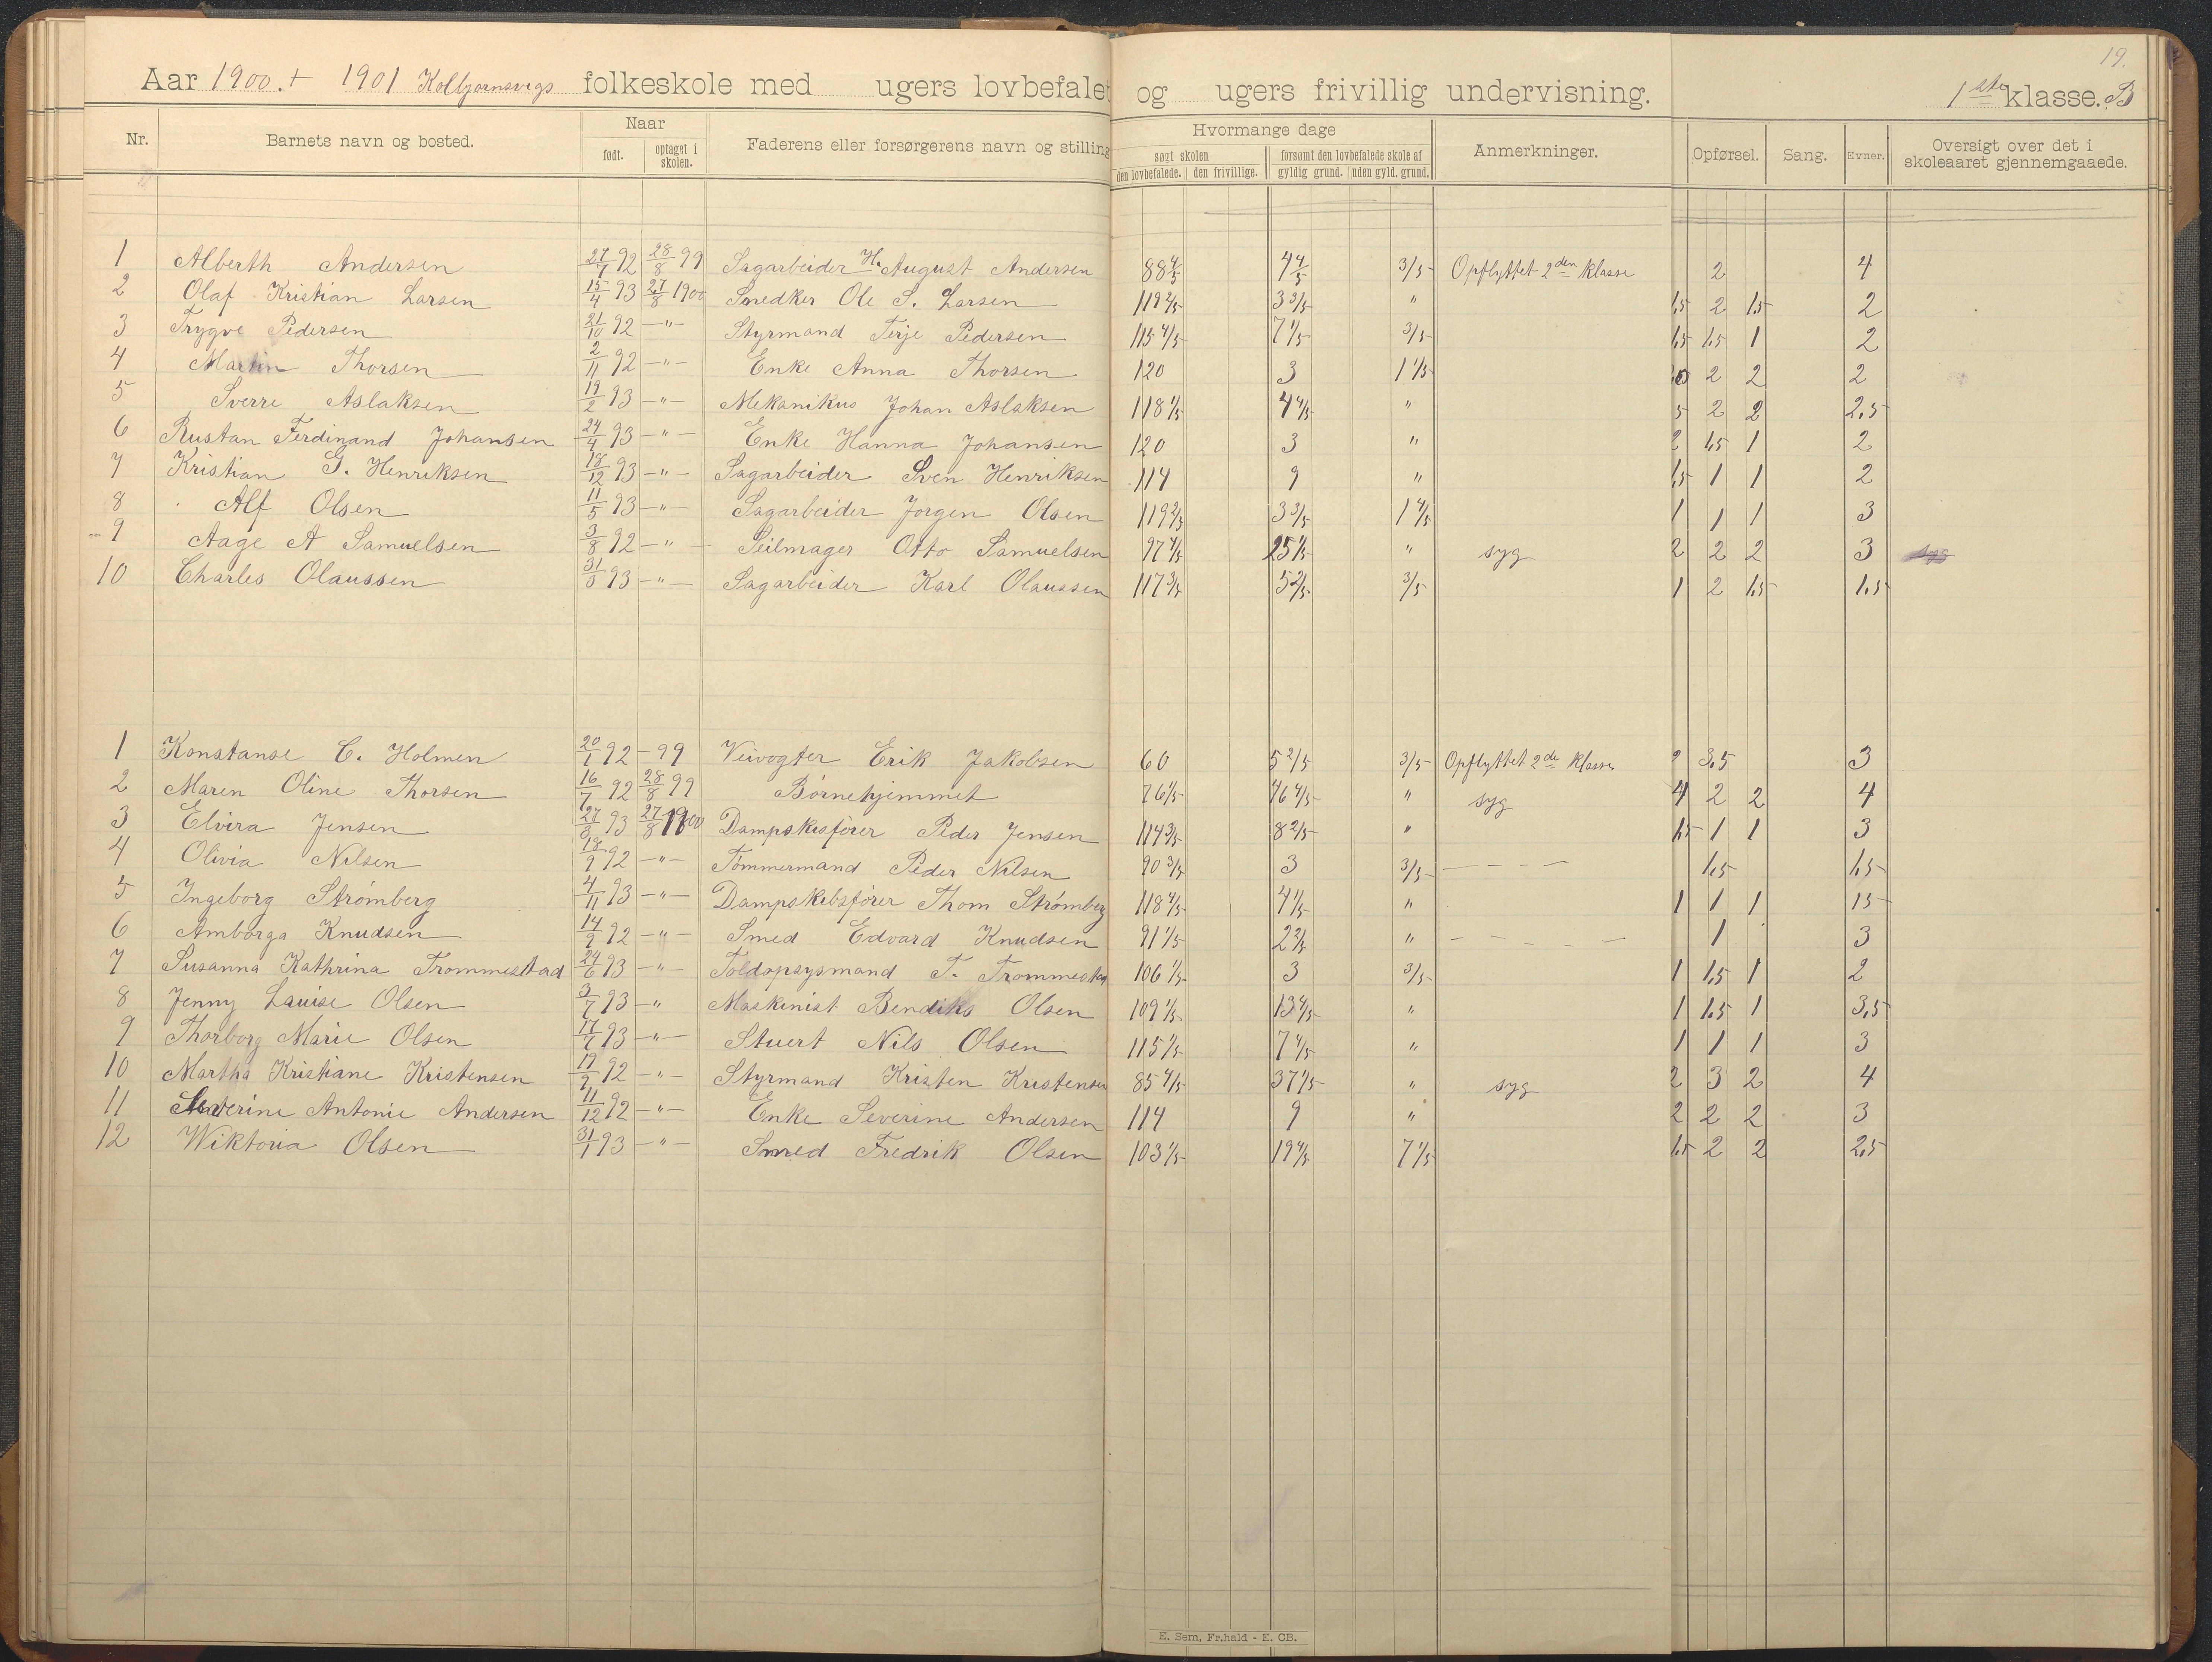 19.
Aar 1900.+ 1901 Kolbjørnsvigs folkeskole med ugers lovbefalet og ugers frivillig undervisning. 1ste klasse. B
Nr. Barnets navn og bosted. Naar født. optaget i skolen. Faderens eller forsørgerens navn og stilling Hvormange dage søgt skolen den lovbefalede. den frivillige. forsømt den lovbefalede skole af gyldig grund. uden gyld. grund. Anmerkninger. Opførsel. Sang. Evner. Oversigt over det i skoleaaret gjennemgaaede.
1 Alberth Andersen 27/7 92 28/8 99 Sagarbeider H. August Andersen 88 4/5 4 4/5 3/5 Opflyttet 2den klasse 2 4
2 Olaf Kristian Larsen 15/4 93 27/8 1900 Snedker Ole S. Larsen 119 2/5 3 3/5 " 1,5 2 1,5 2
3 Trygve Pedersen 21/10 92 -"- Styrmand Terje Pedersen 115 4/5 7 1/5 3/5 1,5 1,5 1 2
4 Martin Thorsen 2/11 92 -"- Enke Anna Thorsen 120 3 1 1/5 2 2 2
5 Sverre Aslaksen 19/2 93 -"- Mekanikus Johan Aslaksen 118 1/5 4 4/5 " 5 2 2 2,5
6 Rustan Ferdinand Johansen 24/4 93 -"- Enke Hanna Johansen 120 3 " 2 1,5 1 2
7 Kristian G. Henriksen 18/12 93 -"- Sagarbeider Sven Henriksen 114 9 " 1,5 1 1 2
8 Alf Olsen 11/5 93 -"- Sagarbeider Jørgen Olsen 119 2/5 3 3/5 1 4/5 1 1 1 3
9 Aage A Samuelsen 3/8 92 -"- Seilmager Otto Samuelsen 97 4/5 25 1/5 " syg 2 2 2 3 syg
10 Charles Olaussen 31/ 93 -"- Sagarbeider Karl Olaussen 117 3/5 5 2/5 3/5 1 2 1,5 1,5
1 Konstanse C. Holmen 20/1 92 - 99 Veivogter Erik Jakobsen 60 5 2/5 3/5 Opflyttet 2de klasse 2 3,5 3
2 Maren Oline Thorsen 16/7 92 28/8 99 Børnehjemmet 76 1/5 46 4/5 " syg 4 2 2 4
3 Elvira Jensen 27/8 93 27/8 1900 Dampskisfører Peder Jensen 114 3/5 8 2/5 " 1,5 1 1 3
4 Olivia Nilsen 18/9 92 -"- Tømmermand Peder Nilsen 90 3/5 3 3/5 - - - - 1,5 1,5
5 Ingeborg Strømberg 4/11 93 -"- Dampskibsfører Thom Strømberg 118 4/5 4 1/5 " 1 1 1 15
6 Amborga Knudsen 14/9 92 -"- Smed Edvard Knudsen 91 1/5 2 2/5 " - - - - 1 3
7 Susanna Kathrina Trommestad 24/6 93 -"- Toldopsysmand T. Trommestad 106 1/5 3 3/5 1 1,5 1 2
8 Jenny Lauise Olsen 3/7 93 -" Maskinist Bendiks Olsen 109 1/5 13 4/5 " 1 1,5 1 3,5
9 Thorborg Marie Olsen 17/7 93 -"- Stuert Nils Olsen 115 1/5 7 4/5 " 1 1 1 3
10 Martha Kristiane Kristensen 19/9 92 -"- Styrmand Kristen Kristensen 85 4/5 37 1/5 " syg 2 3 2 4
11 Severine Antonie Andersen 11/12 92 -"- Enke Severine Andersen 114 9 " 2 2 2 3
12 Wiktoria Olsen 31/1 93 -"- Smed Fredrik Olsen 103 1/5 19 4/5 7 1/5 1,5 2 2 2,5
E. Sem, Fr.hald - E. CB.